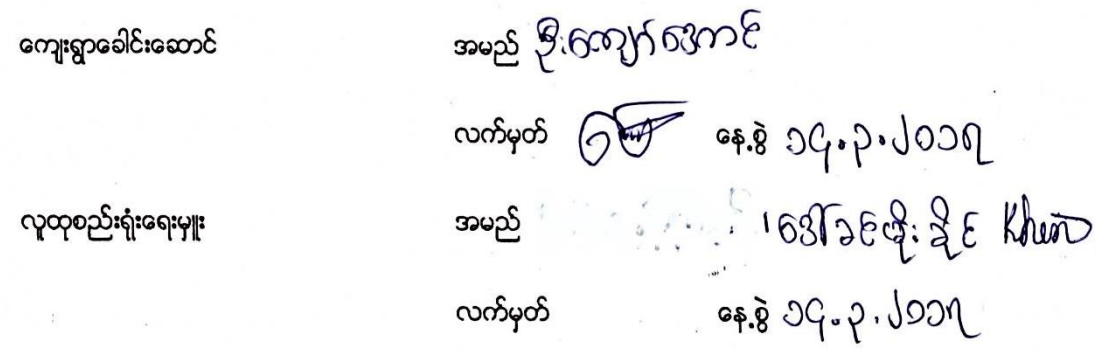 ကျေးရွာခေါင်းဆောင် အမည် ဦးကျော်အောင်
လက်မှတ် နေ့စွဲ ၁၄.၃.၂၀၁၇
လူထုစည်းရုံးရေးမှူး အမည် ဒေါ်ခင်ဖိုးခိုင်
လက်မှတ် နေ့စွဲ ၁၄.၃.၂၁၁၇